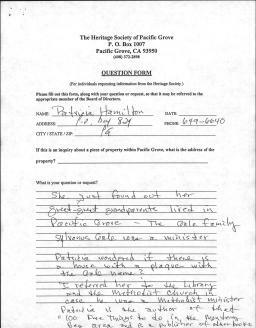 The Heritage Society of Pacific Grove
P. O. Box 1007
Pacific Grove, CA 93950
(408) 372-2898
QUESTION FORM
(For individuals requesting information from the Heritage Society.)
Please fill out this form, along with your question or request, so that it may be referred to the
appropriate member of the Board of Directors.
NAME: Patricia Hamilton DATE:
ADDRESS: P.O. Box 829 PHONE: 649-6640
CITY / STATE / ZIP: PG
If this is an inquiry about a piece of property within Pacific Grove, what is the address of the
property?
What is your question or request?
She just found out her
great-great grandparents lived in
Pacific Grove - The Gale family
Sylvanus Gale was a minister
Patricia wondered if there is
a house with a plaque with
the Gale name?
I referred her to the Library
and the Methodist Church in
case he was a Methodist minister
Patricia is the author of that
100 Fun Things to do in the Monterey
Bay area and is a publisher of other books